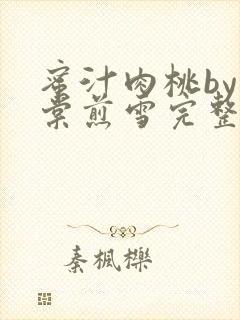 蜜汁肉桃by
棠煎雪完整
秦楓櫟